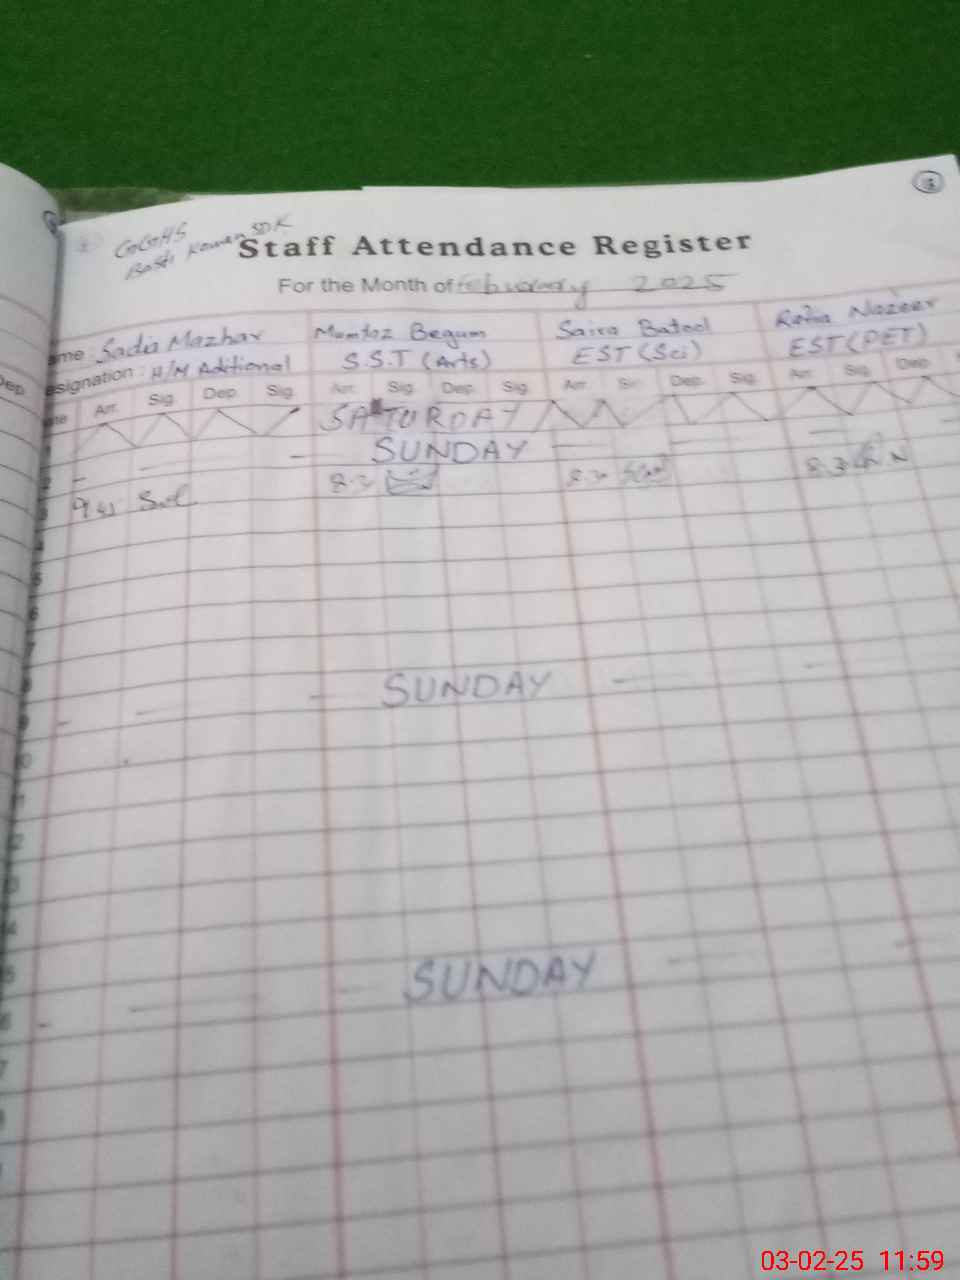 GGHS
Basti Kowan SDK
Staff Attendance Register
For the Month of February 2025
ame : Sadia Mazhar Mumtaz Begum Saira Batool Rafia Nazeer
esignation : H/M Aditional S.S.T (Arts) EST (Sci) EST (PET)
Dep
Arr. Sig. Dep. Sig. Arr. Sig. Dep. Sig. Arr. Dep. Sig. Arr. Sig. Dep.
1 SATURDAY
2 SUNDAY
3 8.3 8.3
4
5
6
7
SUNDAY
9
10
SUNDAY
03-02-25 11:59